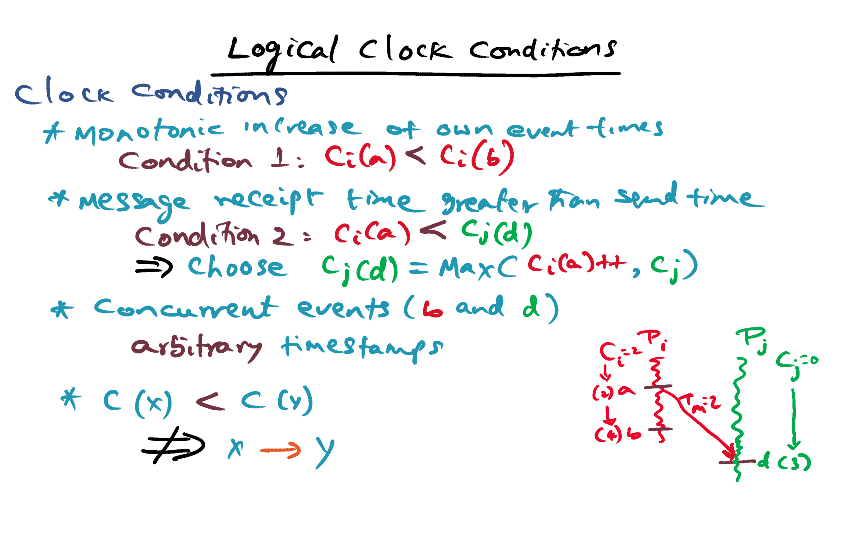 Logical Clock Conditions
Clock Conditions
* Monotonic increase of own event times
Condition 1: Ci(a) < Ci(b)
* Message receipt time greater than send time
Condition 2: Ci(a) < Cj(d)
⇒ Choose Cj(d) = Max( Ci(a)++, Cj)
* Concurrent events (b and d)
arbitrary timestamps
* C(x) < C(y)
⇏ x → y
Pi
Pj
Ci=2
Cj=0
a
Tm=2
b
d (3)